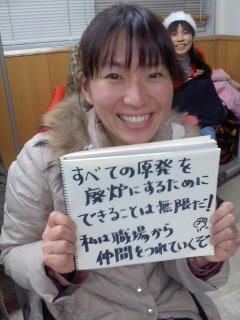 すべての原発を
廃炉にするために
できることは無限だ!
私は職場から
仲間をつれていくぞ